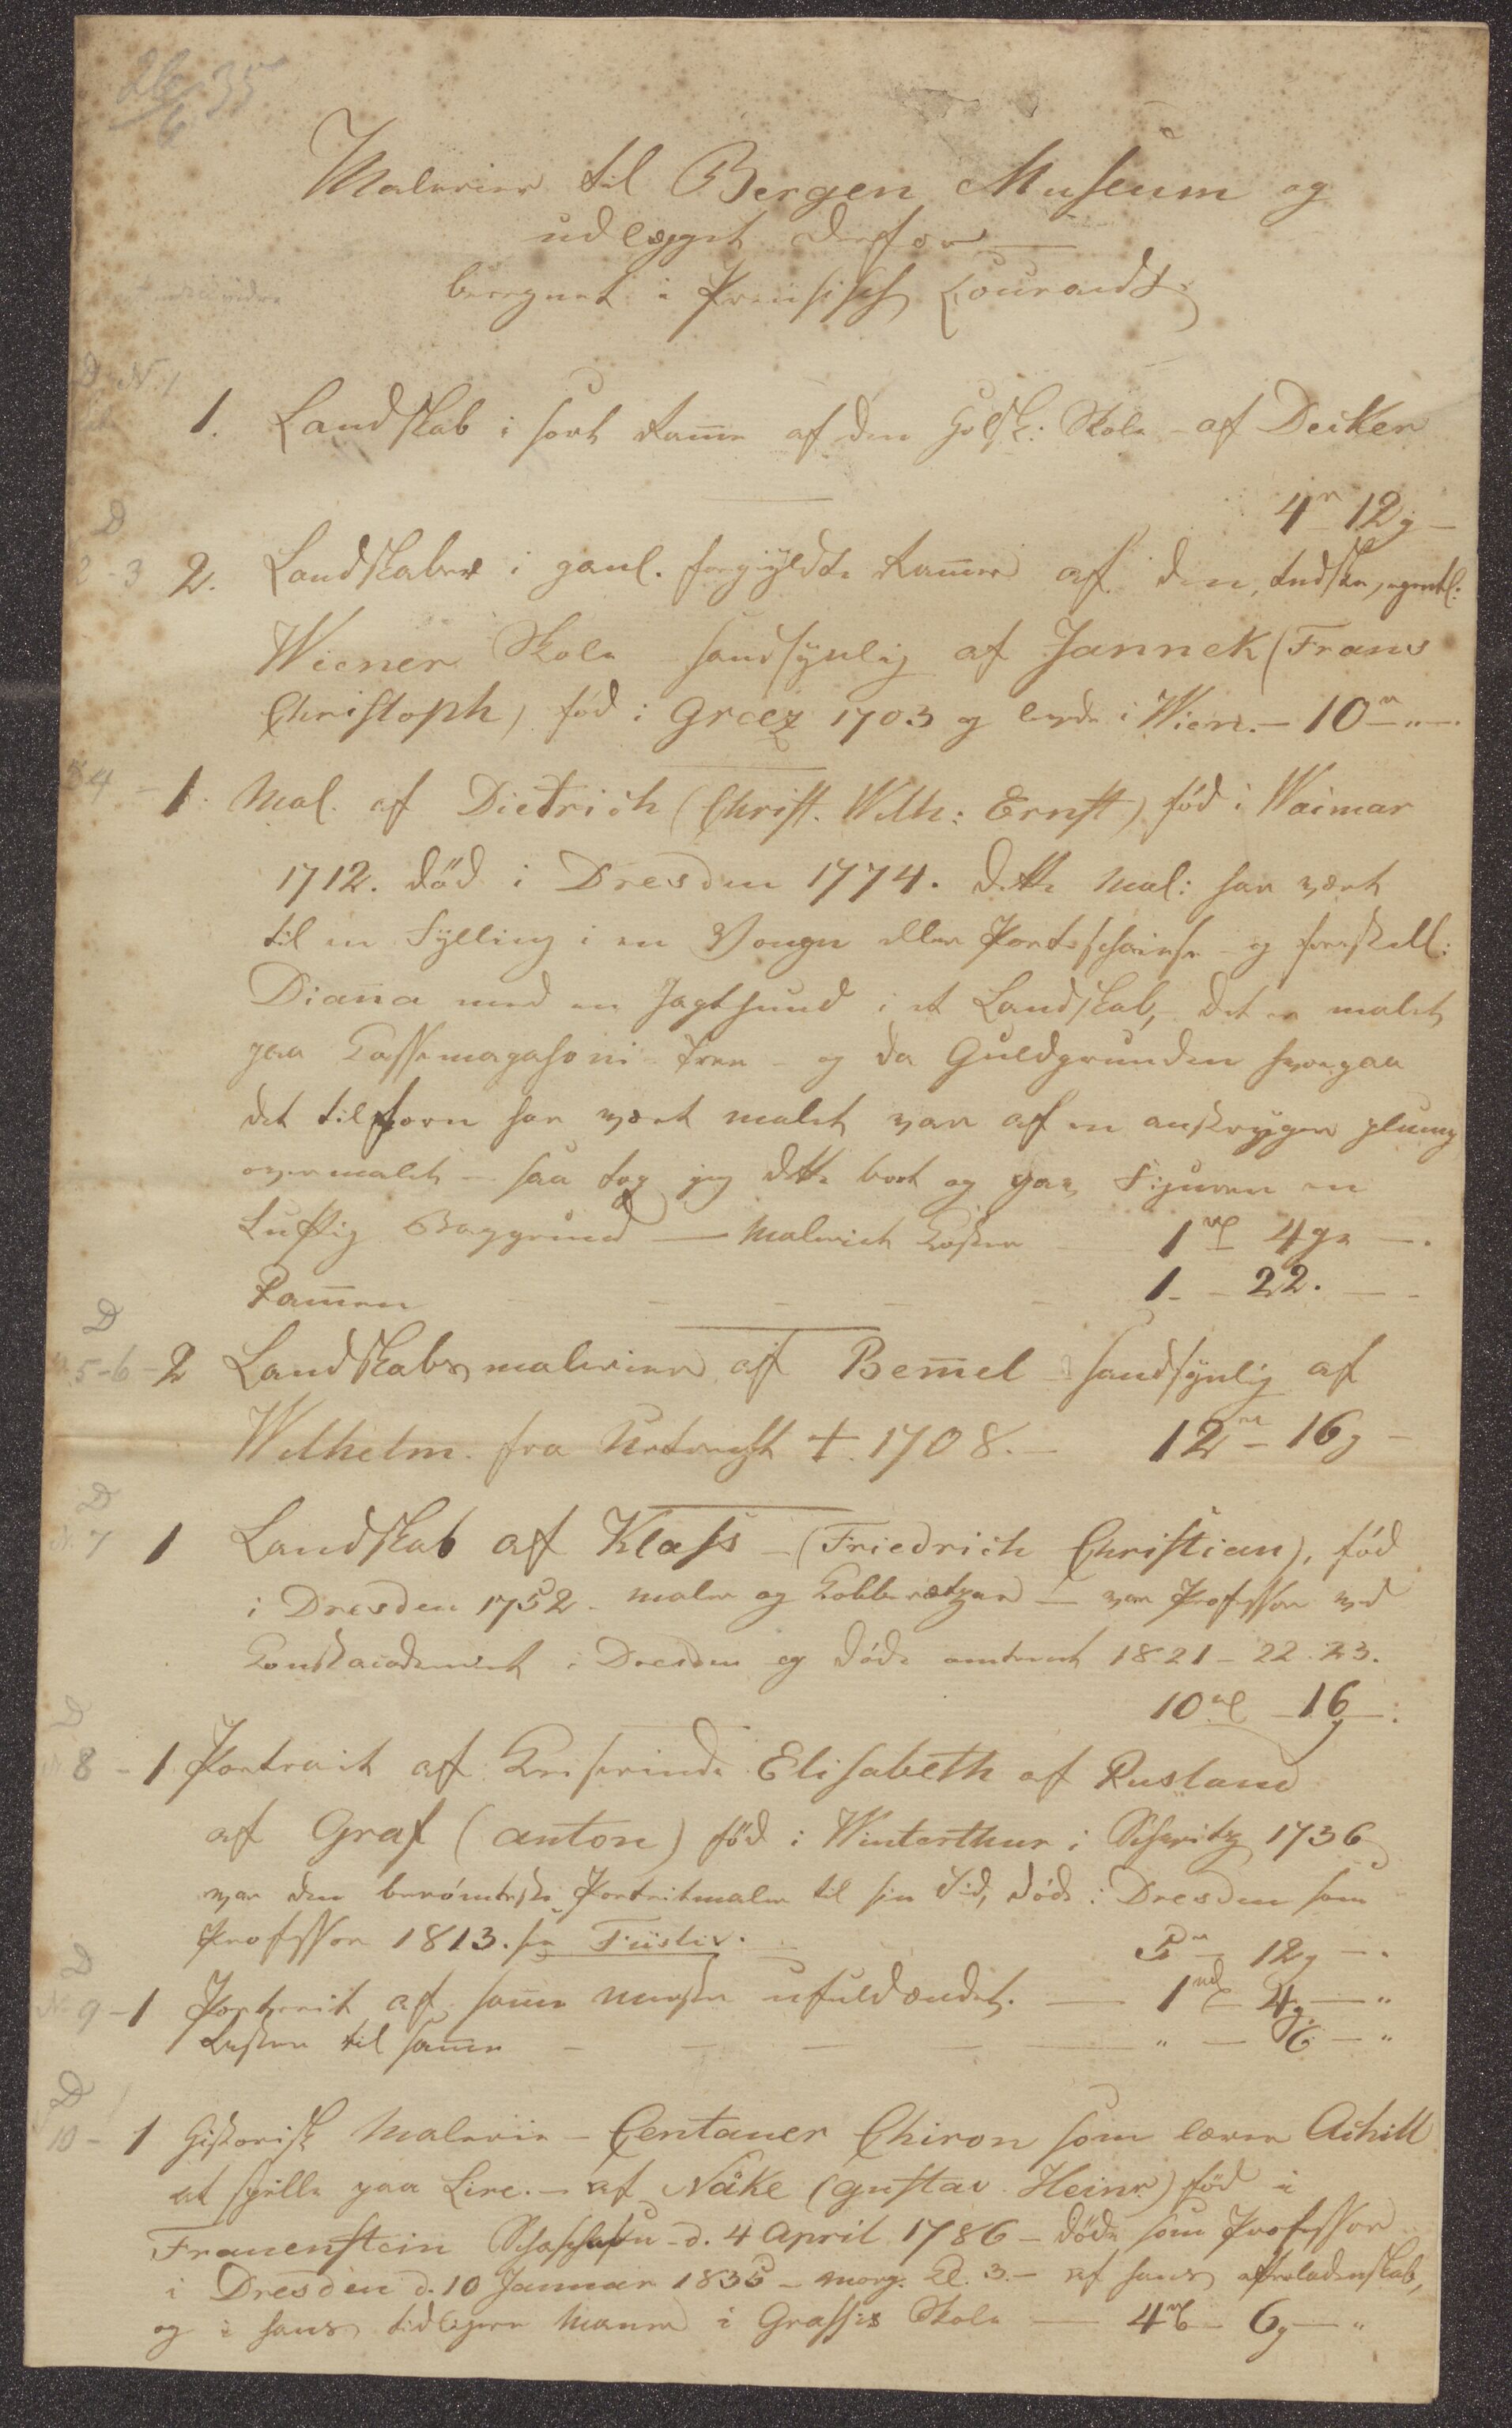 26/6 35
Malerier til Bergen Museum og
udlægget derfor
beregnet i Preusisch Courandt
D N. 1
1. Landskab i sort Ram̅e af den Holsk: Skole - af Decker
4 r 12 g -
D
2-3 2. Landskaber i gaml. forgyldte Ram̅er af den tydske, egentl:
Wiener Skole sandsynlig af Jannek (Frans
Christoph) fød i Graez 1703 og levde i Wien. - 10 r " -
4 - 1. Mal. af Dietrich (Christ. Wilh: Ernst) fød i Waimar
1712. död i Dresden 1774. dette Mal: har vært
til en Fylling i en Vongn eller Portschaise - og forestill:
Diana med en Jagthund i et Landskab, det er malet
paa træe - og da Guldgrunden hvorpaa
det tilforn har vært malet var af en anstryger plump
overmalet - saa tog jeg dette bort og gav Figuren en
Luftig Baggrund - Maleriet koster 1 rl 4 gr -.
Ram̅en - - - - - 1 - 22. - -
D
5-6 - 2 Landskabsmalerier af Bem̅el sandsynlig af
Wilhelm. fra Uetrecht † 1708. - 12 r - 16 g -
D
N. 7 1 Landskab af Klass - (Friedrich Christian), fód
i Dresden 1752 - maler og Kobberætzer - var Professor ved
Konstacademiet i Dresden og dóde omtrent 1821 - 22. 23.
10 rl - 16 g -.
D
8 - 1 Portrait af Keiserinde Elisabeth af Rusland
af Graf (Anton) föd i Winterthur i Schweitz 1736
var den berómteste Portreitmaler til sin Tid, dóde i Dresden som
Professor 1813. se Füsli.
5 r - 12 g -.
D
N. 9 - 1 Portreit af sam̅e Mester ufuldændet. - 1 rl - 4 g. - "
Lister til sam̅e - - - - " - 6 - "
D
10 - 1 Historisk Malerie - Centauer Chiron som lærer Achill
at spille paa Lire. - af Näke (Gustav Heinr) föd i
Frauenstein d. 4 April 1786 - döde som Professor
i Dresden d. 10 Januar 1835 - morg. Kl. 3. - af hans efterladenskab,
og i hans tidligere Maneer i Grassis Skole - 4 rl - 6 g - "